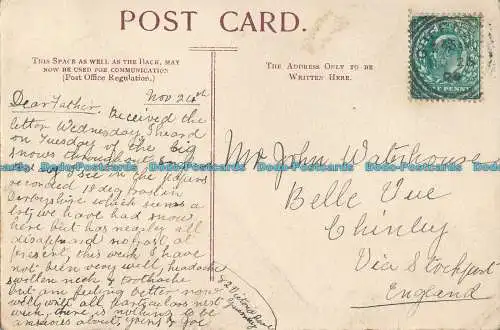 POST CARD.
THIS SPACE AS WELL AS THE BACK, MAY
NOW BE USED FOR COMMUNICATION
(Post Office Regulation.)
THE ADDRESS ONLY TO BE
WRITTEN HERE.
Nov 24th
Dear Father. Received the
letter Wednesday, I heard
on Tuesday of the big
snows throughout
I see in the papers
recorded 18 deg frost in
Derbyshire which seems a
lot, we have had snow
here but has nearly all
disappeared no frost at
present, this week I have
not been very well, headache
swollen neck & toothache
but am feeling better now
will with all particulars next
week, there is nothing to be
anxious about, yours
Mr John Waterhouse
Belle Vue
Chinley
Via Stockport
England